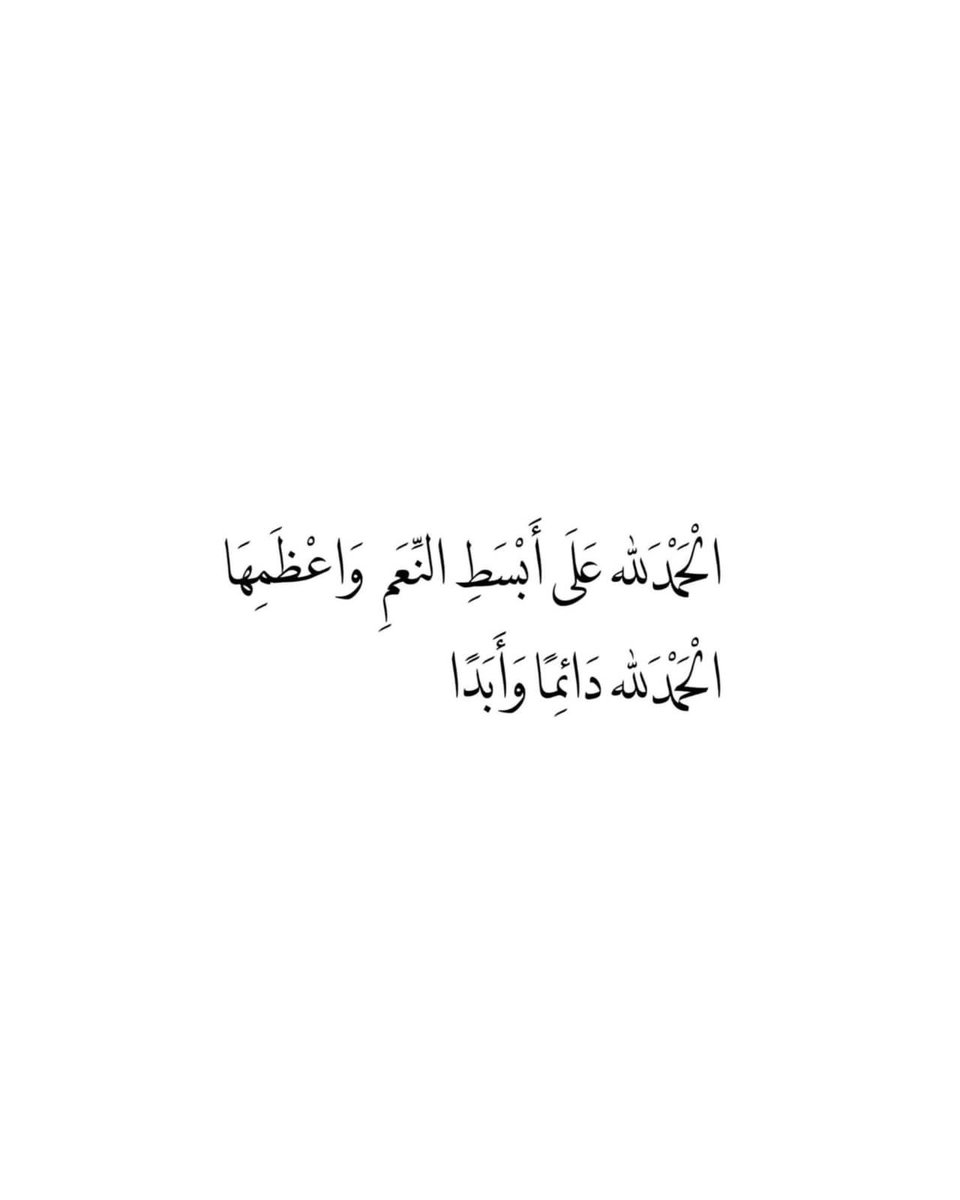 الْحَمْدَلله عَلَى أَبْسَطِ النِّعَمِ وَاعْظَمِهَا
الْحَمْدَلله دَائِمًا وَأَبَدًا